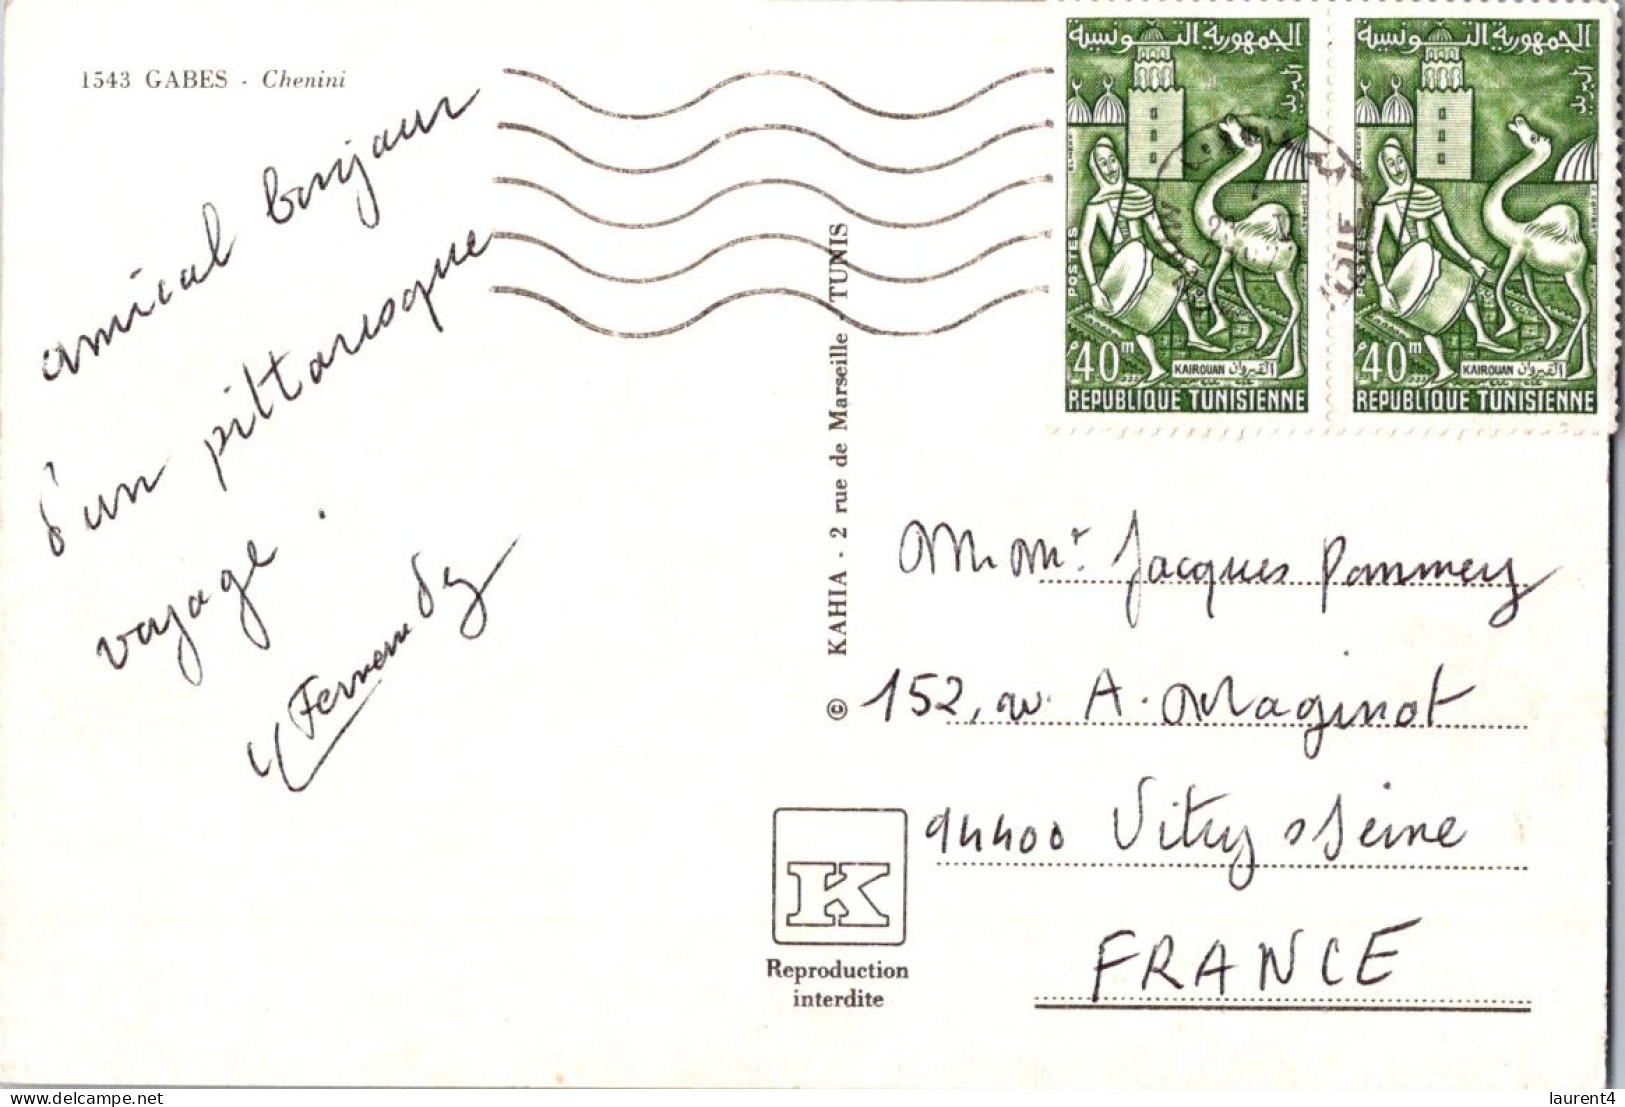 1543 GABES - Chenini
amical bonjour
d'un pittoresque
voyage.
© KAHIA - 2 rue de Marseille - TUNIS
K
Reproduction
interdite
الجمهورية التونسية
البريد
POSTES
40m
KAIROUAN القيروان
REPUBLIQUE TUNISIENNE
الجمهورية التونسية
البريد
POSTES
40m
KAIROUAN القيروان
REPUBLIQUE TUNISIENNE
M. Mr. Jacques Pommery
152, av. A. Maginot
94400 Vitry s/Seine
FRANCE
laurent4